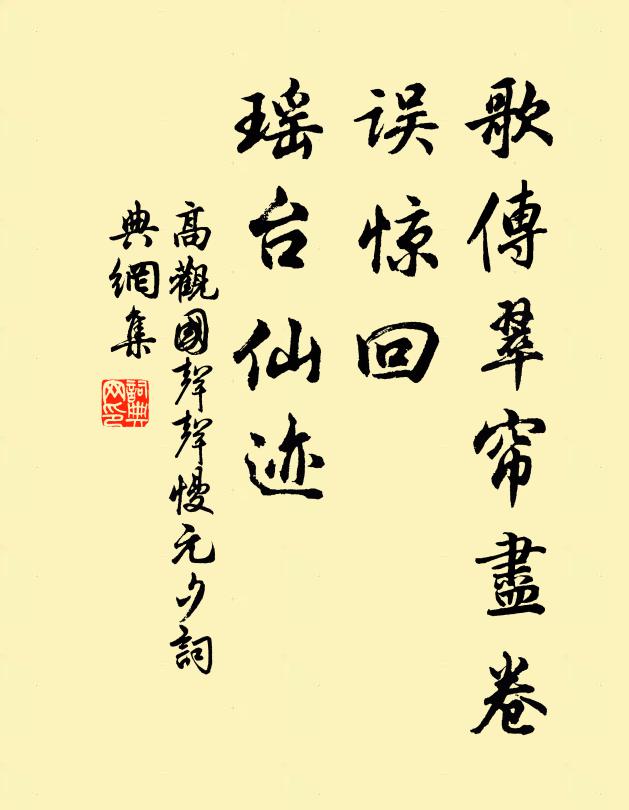 歌傳翠帘盡卷
误惊回
瑶台仙迹
高觀國聲聲慢元夕詞
典網集
詞典网印